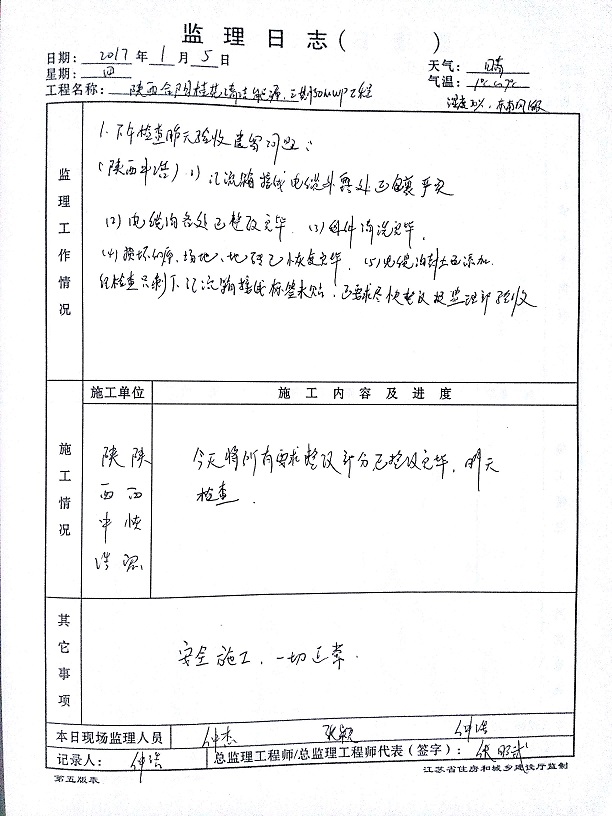 监 理 日 志 (        )
日期: 2017 年 1 月 5 日
天气: 晴
星期: 四
气温: 1℃~7℃
工程名称: 陕西合阳桂花清洁能源二期50MWP工程
湿度 东南风
监理工作情况
1. 下午检查昨天验收遗留问题:
(陕西中浩) (1) 汇流箱接线电缆外露处已包裹平实
(2) 电缆沟多处已整改完毕, (3) 组件清洗完毕,
(4) 损坏的 场地、地 已恢复完毕, (5) 电缆沟封土已添加.
经检查只剩下汇流箱接线标签未贴, 已要求尽快整改报监理部验收
施工单位
施 工 内 容 及 进 度
施工情况
陕西中浩
陕西恢
今天将所有要求整改部分已整改完毕, 明天
检查.
其它事项
安全施工, 一切正常.
本日现场监理人员 仲杰 张颖 仲浩
记录人: 仲浩 总监理工程师/总监理工程师代表(签字):
第五版表
江苏省住房和城乡建设厅监制